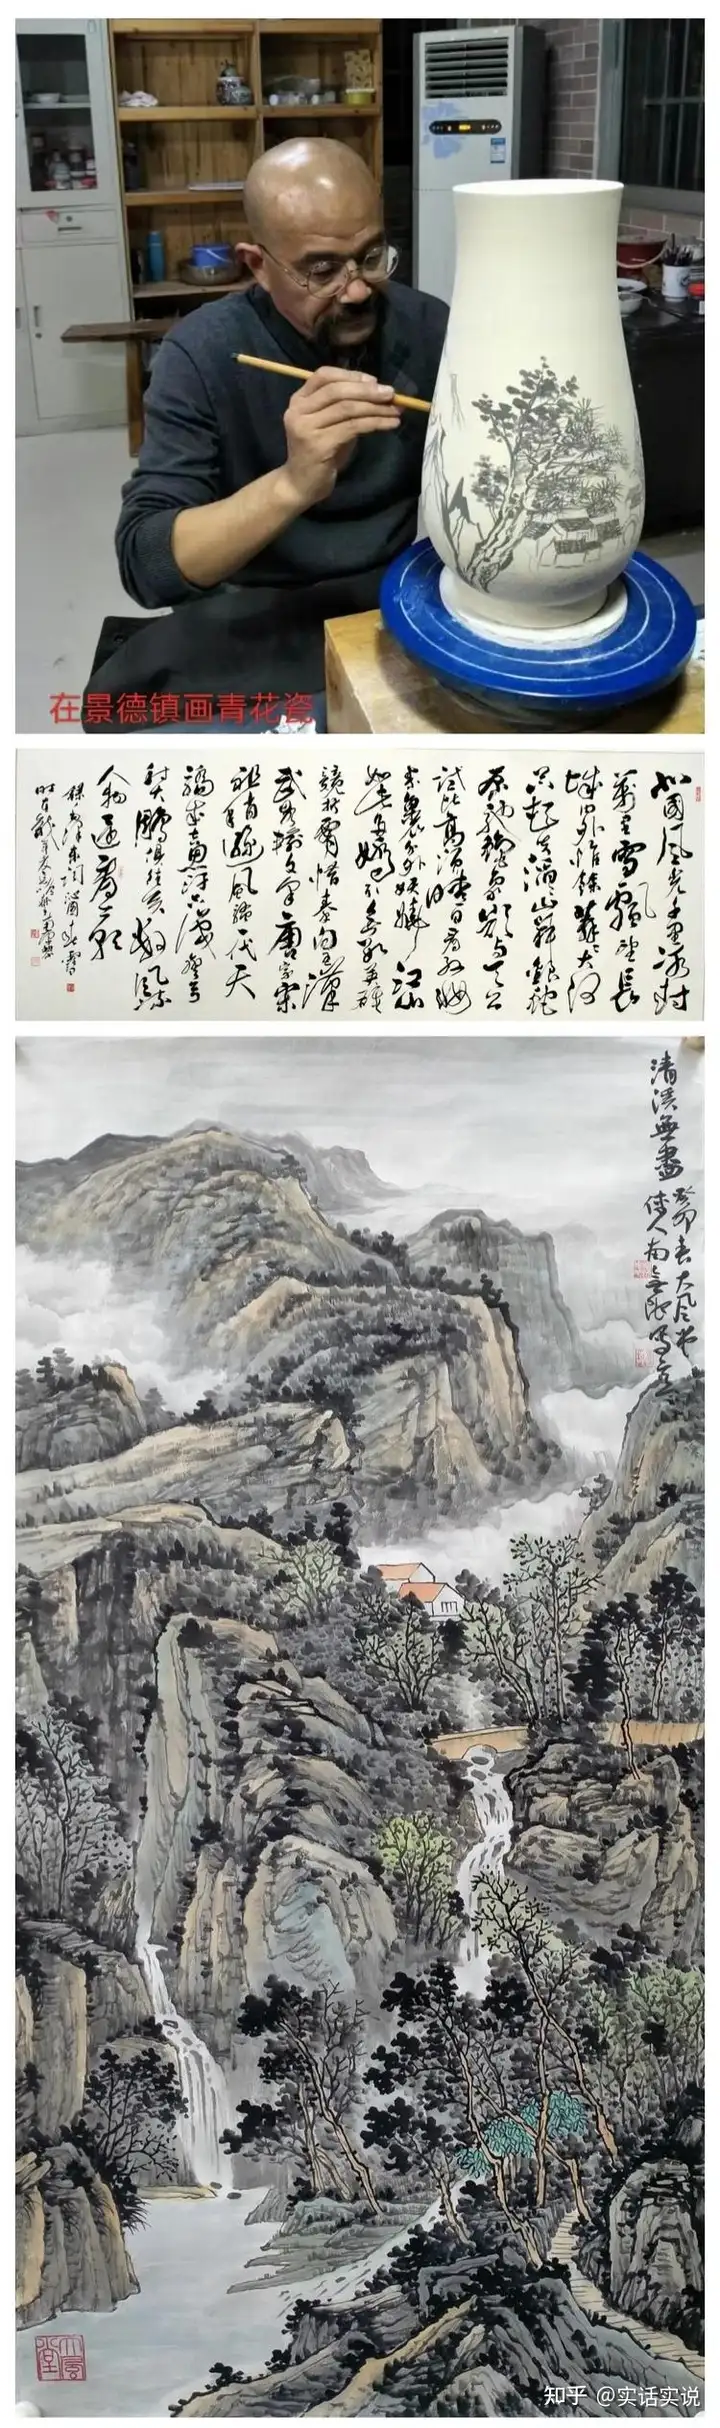 在景德镇画青花瓷
北国风光千里冰封
萬里雪飄望长
城内外惟餘莽莽大河
上下顿失滔滔山舞银蛇
原驰蜡象欲与天公
试比高须晴日看红妆
素裹分外妖娆江山
如此多娇引无数英雄
竞折腰惜秦皇汉
武略输文采唐宗宋
祖稍逊风骚一代天
骄成吉思汗只识弯弓
射大鵰俱往矣数风流
人物还看今朝
錄毛泽东词沁园春雪
清溪無盡
癸卯春大风堂
传人南
知乎 @实话实说